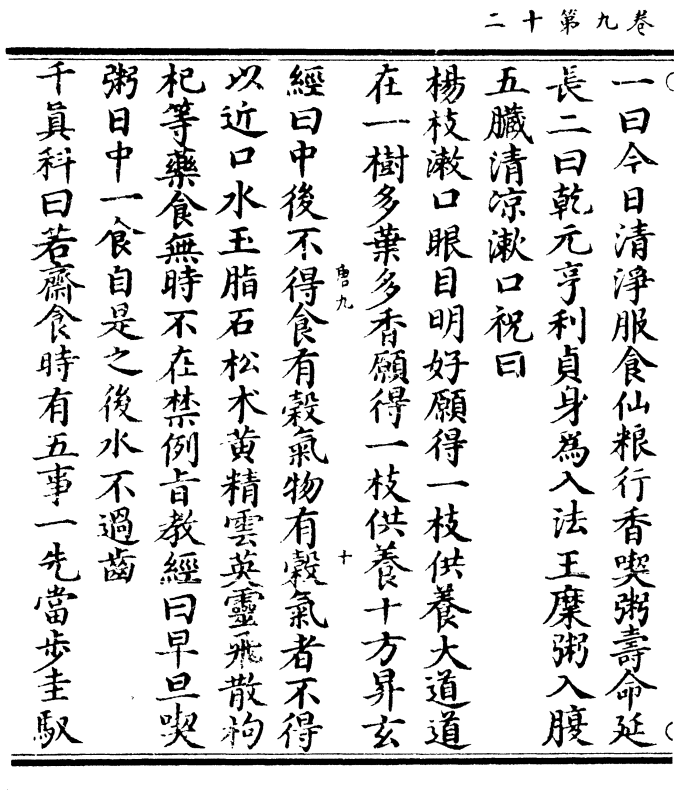 二十第九卷
一曰今日清淨服食仙粮行香喫粥壽命延
長二曰乾元亨利貞身爲入法王糜粥入腹
五臟清凉漱口祝曰
楊枝漱口眼目明好願得一枝供養大道道
在一樹多葉多香願得一枝供養十方昇玄
唐九 十
經曰中後不得食有穀氣物有穀氣者不得
以近口水玉脂石松朮黄精雲英靈飛散枸
杞等藥食無時不在禁例旨教經曰早旦喫
粥日中一食自是之後水不過齒
千眞科曰若齋食時有五事一先當步圭馭